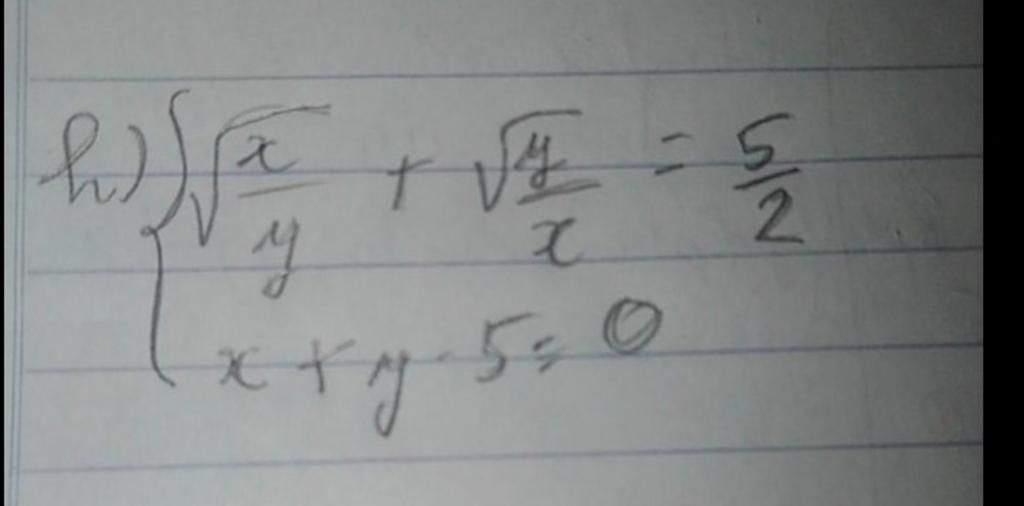 h) { √(x/y) + √(y/x) = 5/2
x + y - 5 = 0